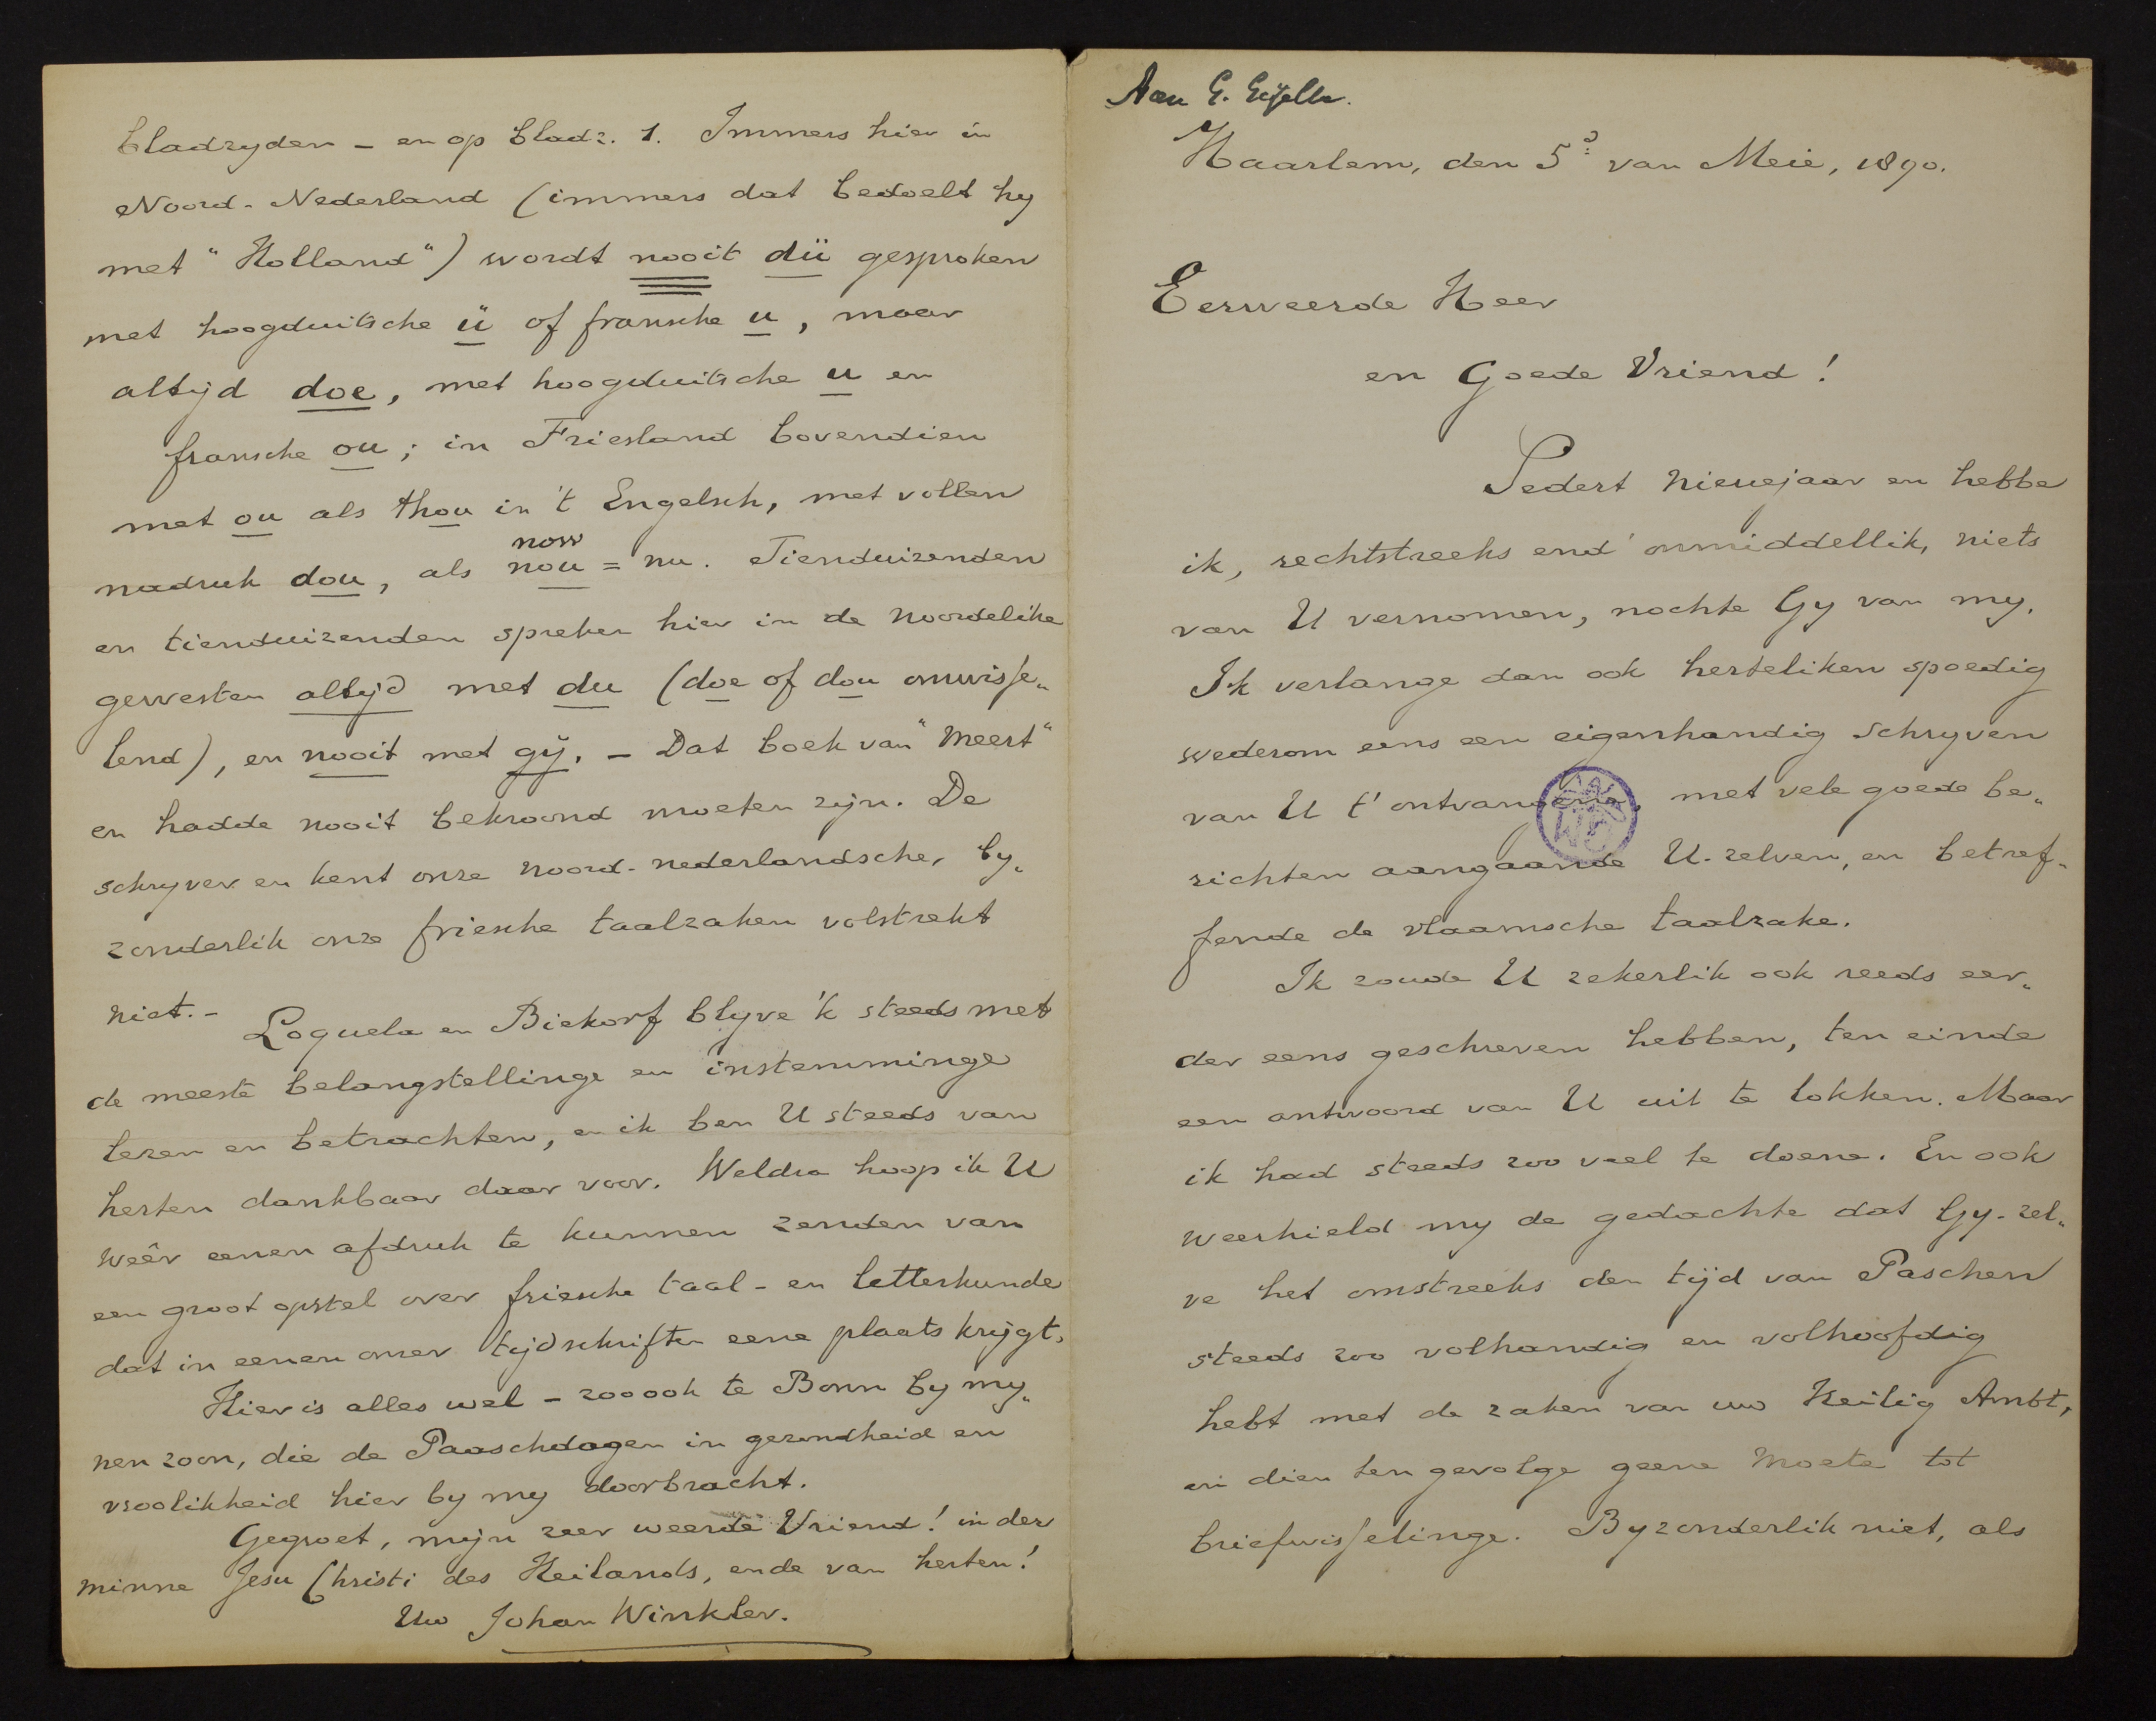 Aan G. Gezelle.
Haarlem, den 5ᵈ van Meie, 1890.
Eerweerde Heer
en Goede Vriend!
Sedert Nieuwjaar en hebbe
ik, rechtstreeks end' onmiddellik, niets
van U vernomen, nochte Gy van my.
Ik verlange dan ook herteliken spoedig
wederom eens een eigenhandig schryven
van U t' ontvangene, met vele goede be„
richten aangaande U-zelven, en betref„
fende de vlaamsche taalzake.
Ik zoude U zekerlik ook reeds eer„
der eens geschreven hebben, ten einde
een antwoord van U uit te lokken. Maar
ik had steeds zoo veel te doene. En ook
weerhield my de gedachte dat Gy-zel„
ve het omstreeks den tijd van Paschen
steeds zoo volhandig en volhoofdig
hebt met de zaken van uw Heilig Ambt,
en dien ten gevolge geene moete tot
briefwisselinge. Byzonderlik niet, als
bladzyden – en op bladz. 1. Immers hier in
Noord-Nederland (immers dat bedoelt hy
met "Holland") wordt nooit dü gesproken
met hoogduitsche ü of fransche u, maar
altijd doe, met hoogduitsche u en
fransche ou; in Friesland bovendien
met ou als thou in 't Engelsch, met vollen
now
nadruk dou, als nou = nu. Tienduizenden
en tienduizenden spreken hier in de noordelike
gewesten altijd met du (doe of dou onwisse„
lend), en nooit met gÿ. – Dat boek van "Meert"
en hadde nooit bekroond moeten zijn. De
schryver en kent onze noord-nederlandsche, by„
zonderlik onze friesche taalzaken volstrekt
niet. –
Loquela en Biekorf blyve 'k steeds met
de meeste belangstellinge en instemminge
lezen en betrachten, en ik ben U steeds van
herten dankbaar daar voor. Weldra hoop ik U
weêr eenen afdruk te kunnen zenden van
een groot opstel over friesche taal- en letterkunde
dat in eenen onzer tijdschriften eene plaats krijgt.
Hier is alles wel – zoo ook te Bonn by my„
nen zoon, die de Paaschdagen in gezondheid en
vroolikheid hier by my doorbracht.
Gegroet, mijn zeer weerde Vriend! in der
minne Jesu Christi des Heilands, ende van herten!
Uw Johan Winkler.